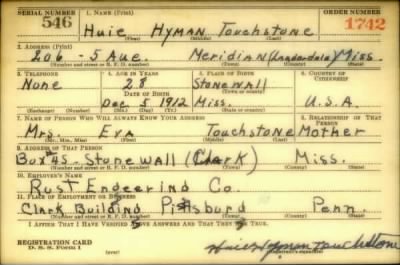 SERIAL NUMBER 1. NAME (Print) ORDER NUMBER
546 Huie Hyman Touchstone 1742
(First) (Middle) (Last)
2. ADDRESS (Print)
206 - 5 Ave. Meridian (Lauderdale) Miss.
(Number and street or R. F. D. number) (Town) (County) (State)
3. TELEPHONE 4. AGE IN YEARS 5. PLACE OF BIRTH 6. COUNTRY OF CITIZENSHIP
None 28 Stonewall
DATE OF BIRTH (Town or county)
Dec 5 1912 Miss. U.S.A.
(Exchange) (Number) (Mo.) (Day) (Yr.) (State or country)
7. NAME OF PERSON WHO WILL ALWAYS KNOW YOUR ADDRESS 8. RELATIONSHIP OF THAT PERSON
Mrs. Eva Touchstone Mother
(Mr., Mrs., Miss) (First) (Middle) (Last)
9. ADDRESS OF THAT PERSON
Box 45 - Stonewall (Clark) Miss.
(Number and street or R. F. D. number) (Town) (County) (State)
10. EMPLOYER'S NAME
Rust Engeerind Co.
11. PLACE OF EMPLOYMENT OR BUSINESS
Clark Buildind Pitsburd Penn.
(Number and street or R. F. D. number) (Town) (County) (State)
I AFFIRM THAT I HAVE VERIFIED ABOVE ANSWERS AND THAT THEY ARE TRUE.
REGISTRATION CARD
D. S. S. Form 1 (over) Huie Hyman Touchstone
(Registrant's signature)